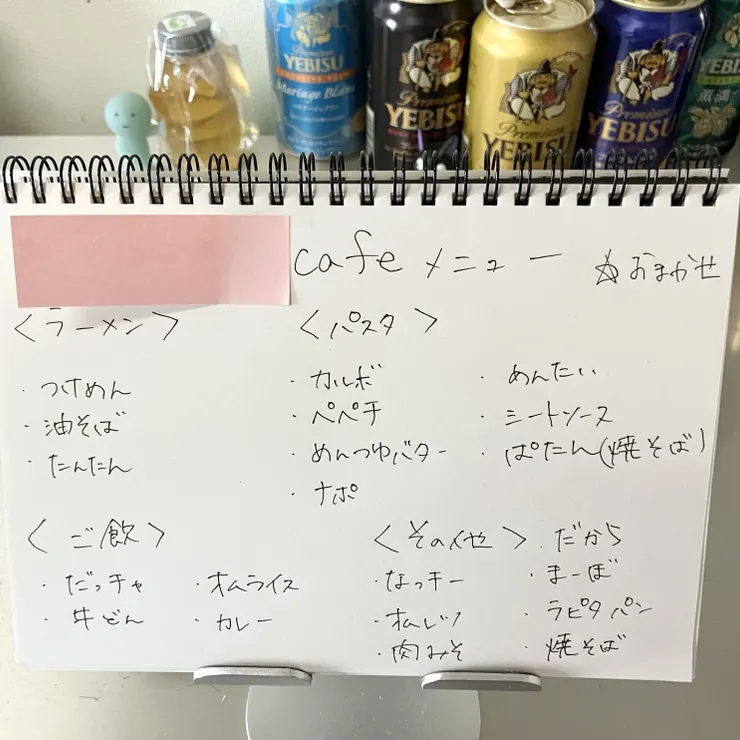 YEBISU
Premium
YEBISU
Premium
YEBISU
Premium
YEBISU
cafe メニュー
☆おまかせ
〈ラーメン〉
・つけめん
・油そば
・たんたん
〈パスタ〉
・カルボ
・ペペチ
・めんつゆバター
・ナポ
・めんたい
・ミートソース
・ぱたん(焼そば)
〈ご飯〉
・だっチャ
・牛どん
・オムライス
・カレー
〈その他〉
・なっキー
・オムレツ
・肉みそ
・だから
・まーぼ
・ラピタパン
・焼そば